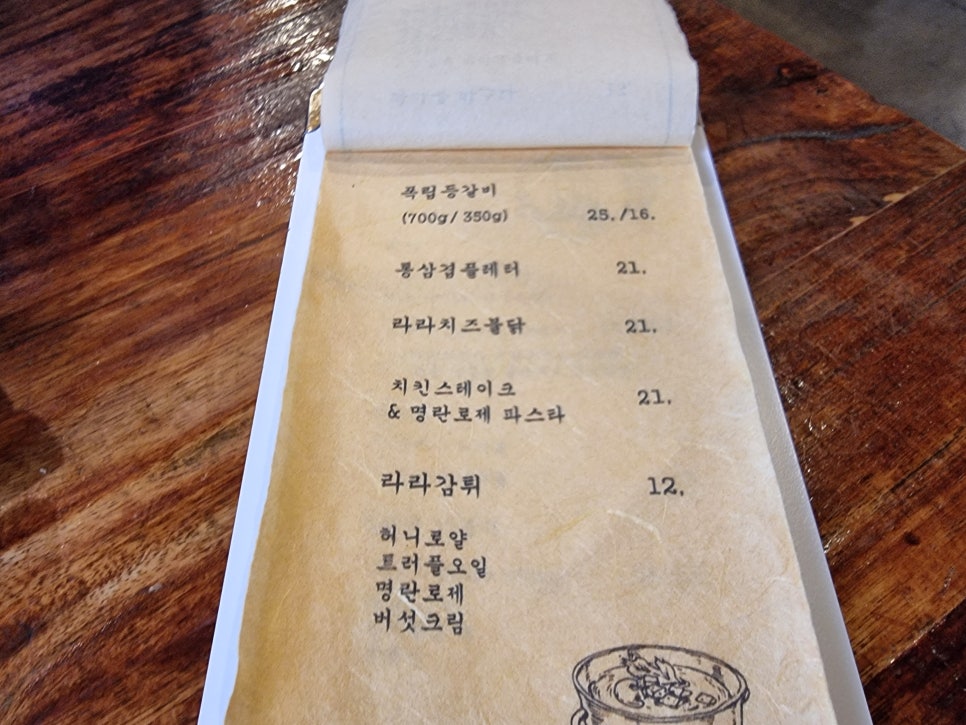 폭립등갈비
(700g/ 350g) 25./16.
통삼겹플레터 21.
라라치즈불닭 21.
치킨스테이크
& 명란로제 파스타 21.
라라감튀 12.
허니로얄
트러플오일
명란로제
버섯크림